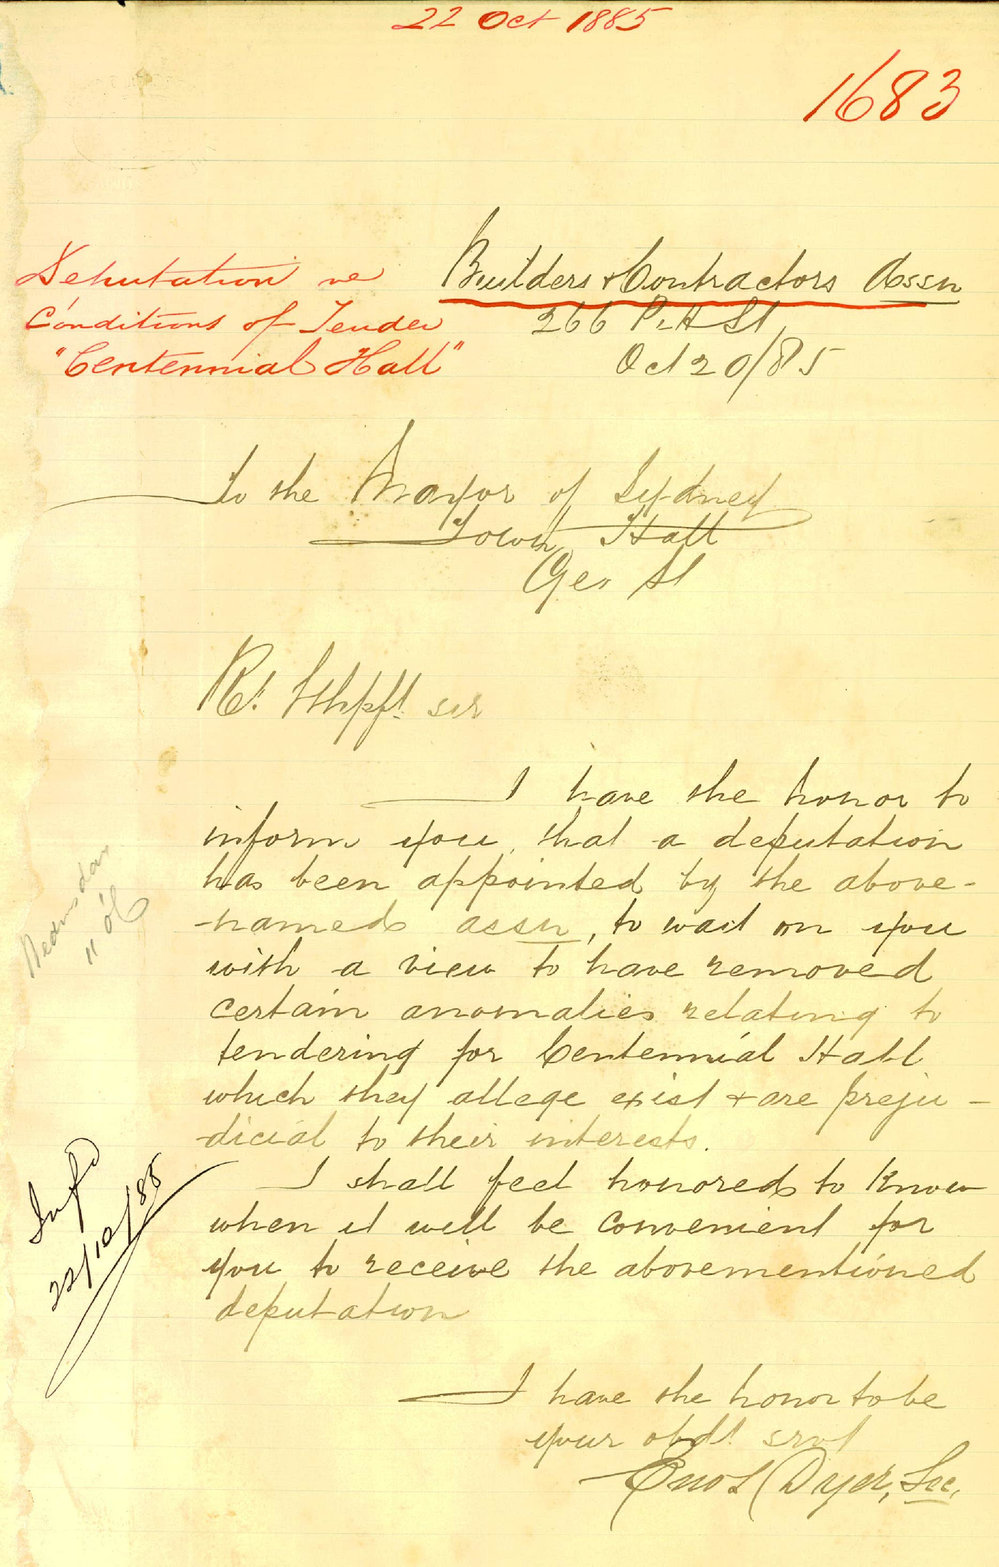 22 Oct 1885
1683
Deputation re
Conditions of Tender
"Centennial Hall"
Builders & Contractors Assn
266 Pitt St
Oct 20/85
To the Mayor of Sydney
Town Hall
Geo St
Rt. Wshpfl. sir
I have the honor to
inform you, that a deputation
has been appointed by the above-
-named assn, to wait on you
with a view to have removed
certain anomalies relating to
tendering for Centennial Hall
which they allege exist & are preju-
-dicial to their interests.
I shall feel honored to know
when it will be convenient for
you to receive the abovementioned
deputation
I have the honor to be
your obdt. srvt
Enos Dyer, Sec.
Wednesday
11 o'C
Infd
22/10/85